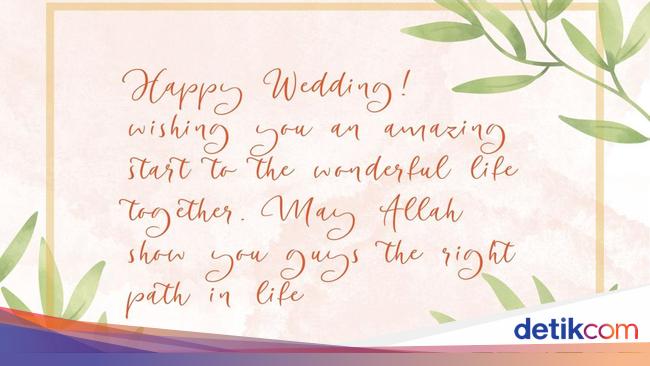 Happy Wedding!
wishing you an amazing
start to the wonderful life
together. May Allah
show you guys the right
path in life
detikcom